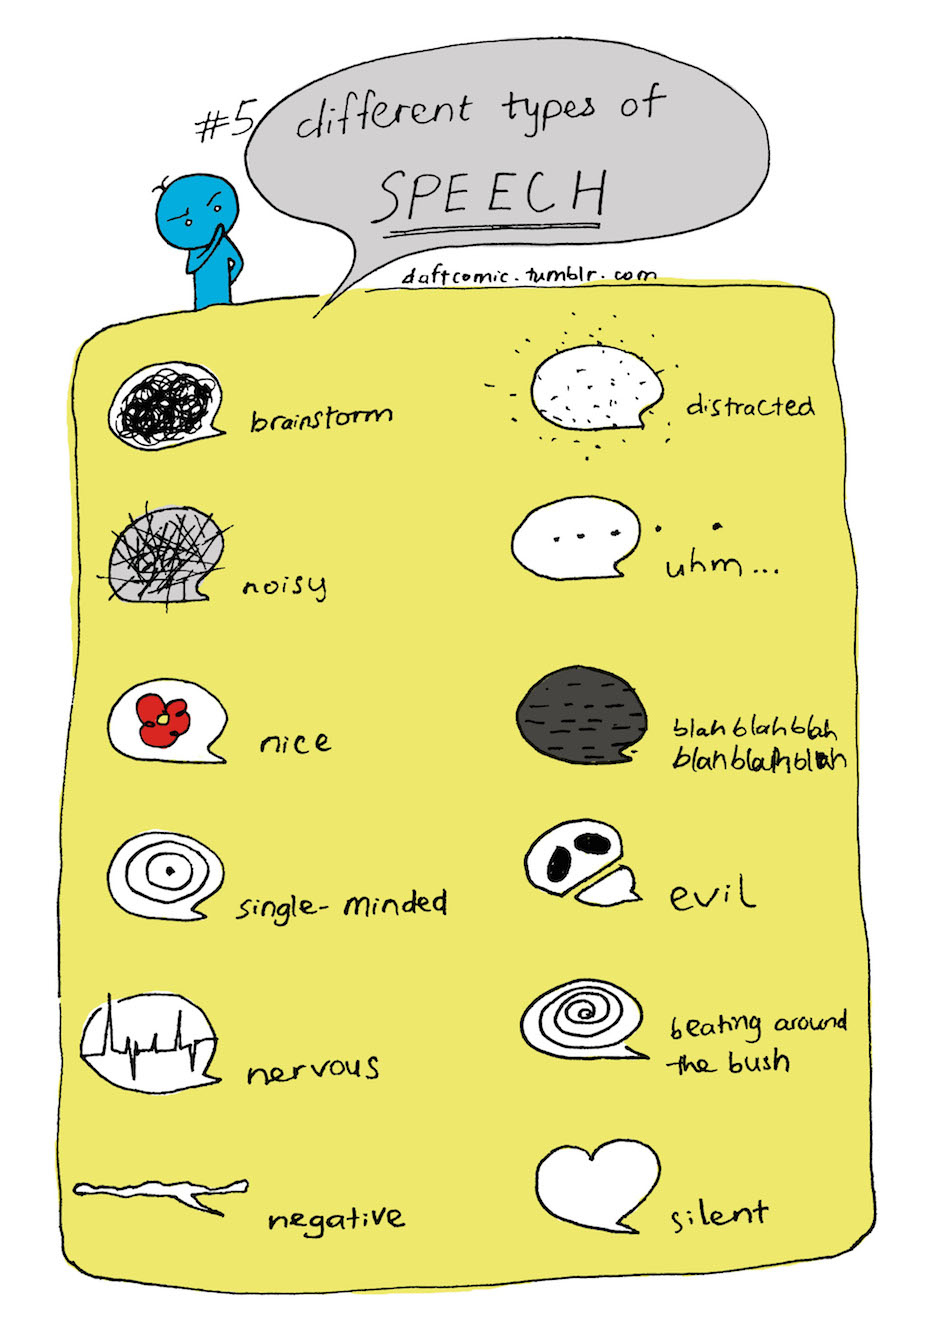 #5 different types of
SPEECH
daftcomic.tumblr.com
brainstorm
distracted
noisy
uhm...
nice
blah blah blah
blah blah blah
single-minded
evil
nervous
beating around
the bush
negative
silent